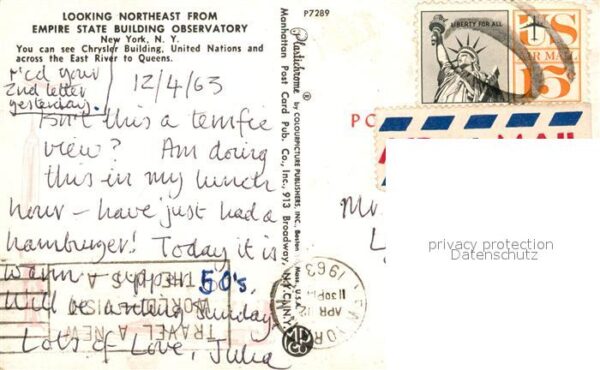 LOOKING NORTHEAST FROM
EMPIRE STATE BUILDING OBSERVATORY
New York, N. Y.
You can see Chrysler Building, United Nations and
across the East River to Queens.
P7289
Rec'd your
2nd letter
yesterday.
12/4/63
Isn't this a terrific
view? Am doing
this in my lunch
hour – have just had a
hamburger! Today it is
warm
50's.
Will be writing Sunday.
Lots of Love, Julia
Plastichrome ® by COLOURPICTURE PUBLISHERS, INC. Boston, Mass., U.S.A.
Manhattan Post Card Pub. Co., Inc., 913 Broadway, N.Y.C., N.Y.
TRAVEL A NEW
WORLD IS
THERE
LIBERTY FOR ALL
US
AIR MAIL
15
APR 12
11 30 PM
1963
privacy protection
Datenschutz